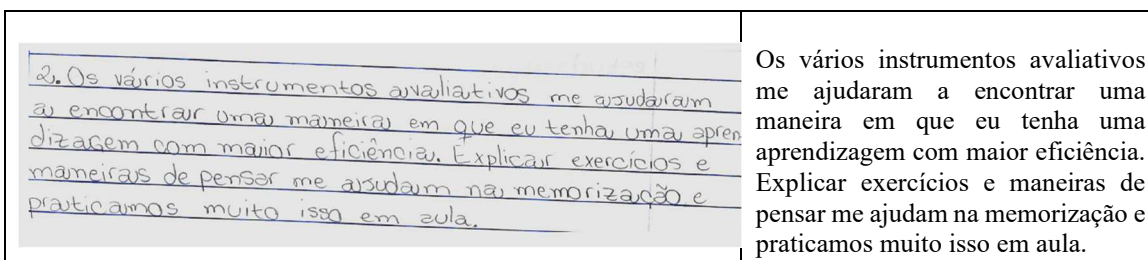 2. Os vários instrumentos avaliativos me ajudaram
a encontrar uma maneira em que eu tenha uma apren
dizagem com maior eficiência. Explicar exercícios e
maneiras de pensar me ajudam na memorização e
praticamos muito isso em aula.
Os vários instrumentos avaliativos
me ajudaram a encontrar uma
maneira em que eu tenha uma
aprendizagem com maior eficiência.
Explicar exercícios e maneiras de
pensar me ajudam na memorização e
praticamos muito isso em aula.